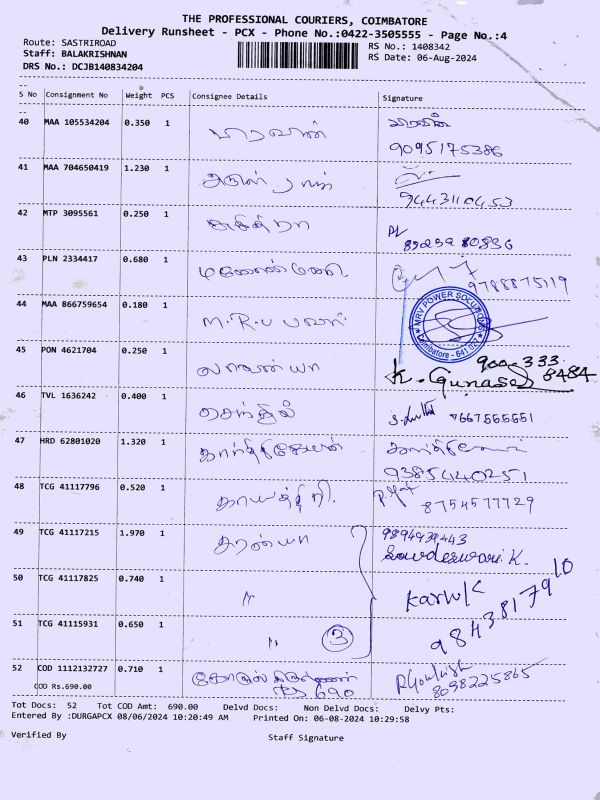 THE PROFESSIONAL COURIERS, COIMBATORE
Delivery Runsheet - PCX - Phone No.:0422-3505555 - Page No.:4
Route: SASTRIROAD
RS No.: 1408342
Staff: BALAKRISHNAN
RS Date: 06-Aug-2024
DRS No.: DCJB140834204
S No Consignment No Weight PCS Consignee Details Signature
40 MAA 105534204 0.350 1
9095175386
41 MAA 704650419 1.230 1
9443110453
42 MTP 3095561 0.250 1
43 PLN 2334417 0.680 1 மணோன்மணி.
9788875119
44 MAA 866759654 0.180 1 M.R.V பவர்
MRV POWER SOLUTIONS
Coimbatore - 641 027
45 PON 4621704 0.250 1 லாவண்யா
900-333 8484
K. Gunase
46 TVL 1636242 0.400 1 செந்தில்
47 HRD 62801020 1.320 1 கார்த்திகேயன்
9385440251
48 TCG 41117796 0.520 1 காயத்திரி.
8754577729
49 TCG 41117215 1.970 1 சரண்யா
Sowdeswari. K.
50 TCG 41117825 0.740 1 "
Karthik
9843817910
51 TCG 41115931 0.650 1 " 3
52 COD 1112132727 0.710 1
COD Rs.690.00
Rs 690
8098225865
Tot Docs: 52 Tot COD Amt: 690.00 Delvd Docs: Non Delvd Docs: Delvy Pts:
Entered By :DURGAPCX 08/06/2024 10:20:49 AM Printed On: 06-08-2024 10:29:58
Verified By
Staff Signature